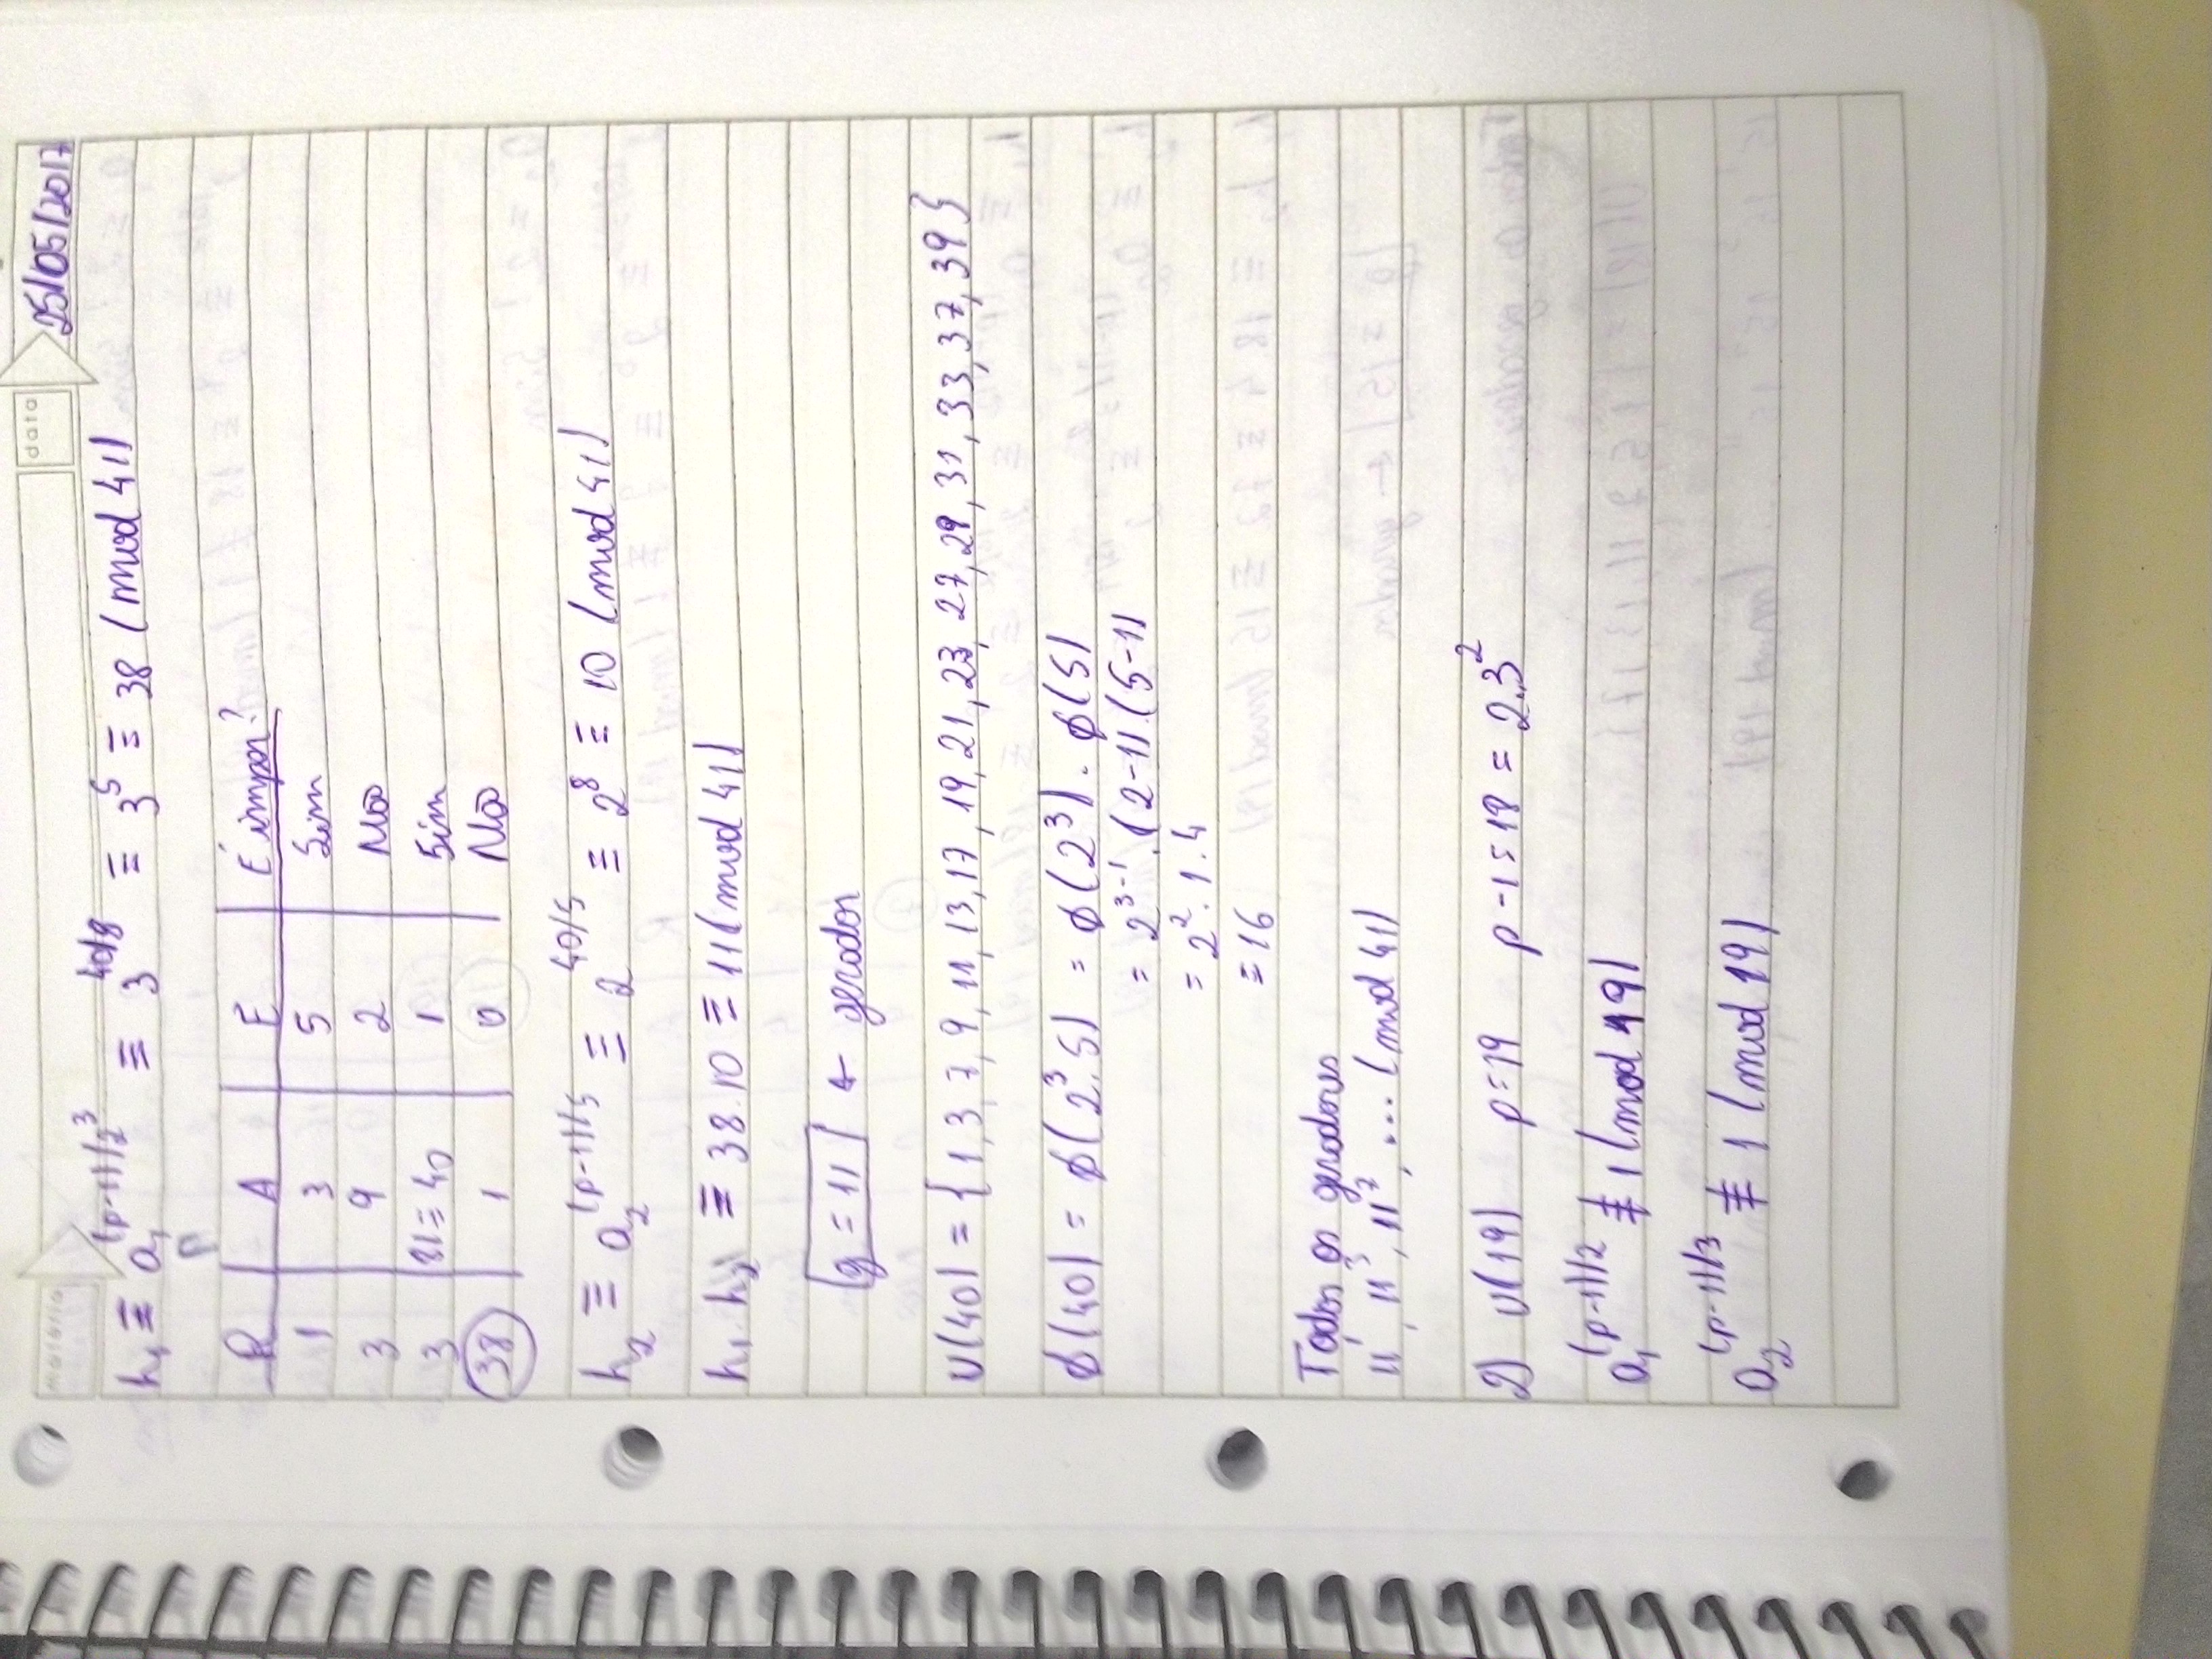 matéria data 25/05/2017
h₁ ≡ a₁^((p-1)/2³) ≡ 3^(40/8) ≡ 3⁵ ≡ 38 (mod 41)
R A E É impar?
1 3 5 Sim
3 9 2 Não
3 81≡40 1 Sim
38 1 0 Não
h₂ ≡ a₂^((p-1)/5) ≡ 2^(40/5) ≡ 2⁸ ≡ 10 (mod 41)
h₁ h₂ ≡ 38.10 ≡ 11 (mod 41)
g = 11 ← gerador
U(40) = {1,3,7,9,11,13,17,19,21,23,27,29,31,33,37,39}
ϕ(40) = ϕ(2³.5) = ϕ(2³).ϕ(5)
= 2^(3-1).(2-1)(5-1)
= 2².1.4
= 16
Todos os geradores
11¹, 11³, 11⁷, ... (mod 41)
2) U(19) p=19 p-1=18 = 2.3²
a₁^((p-1)/2) ≢ 1 (mod 19)
a₂^((p-1)/3) ≢ 1 (mod 19)